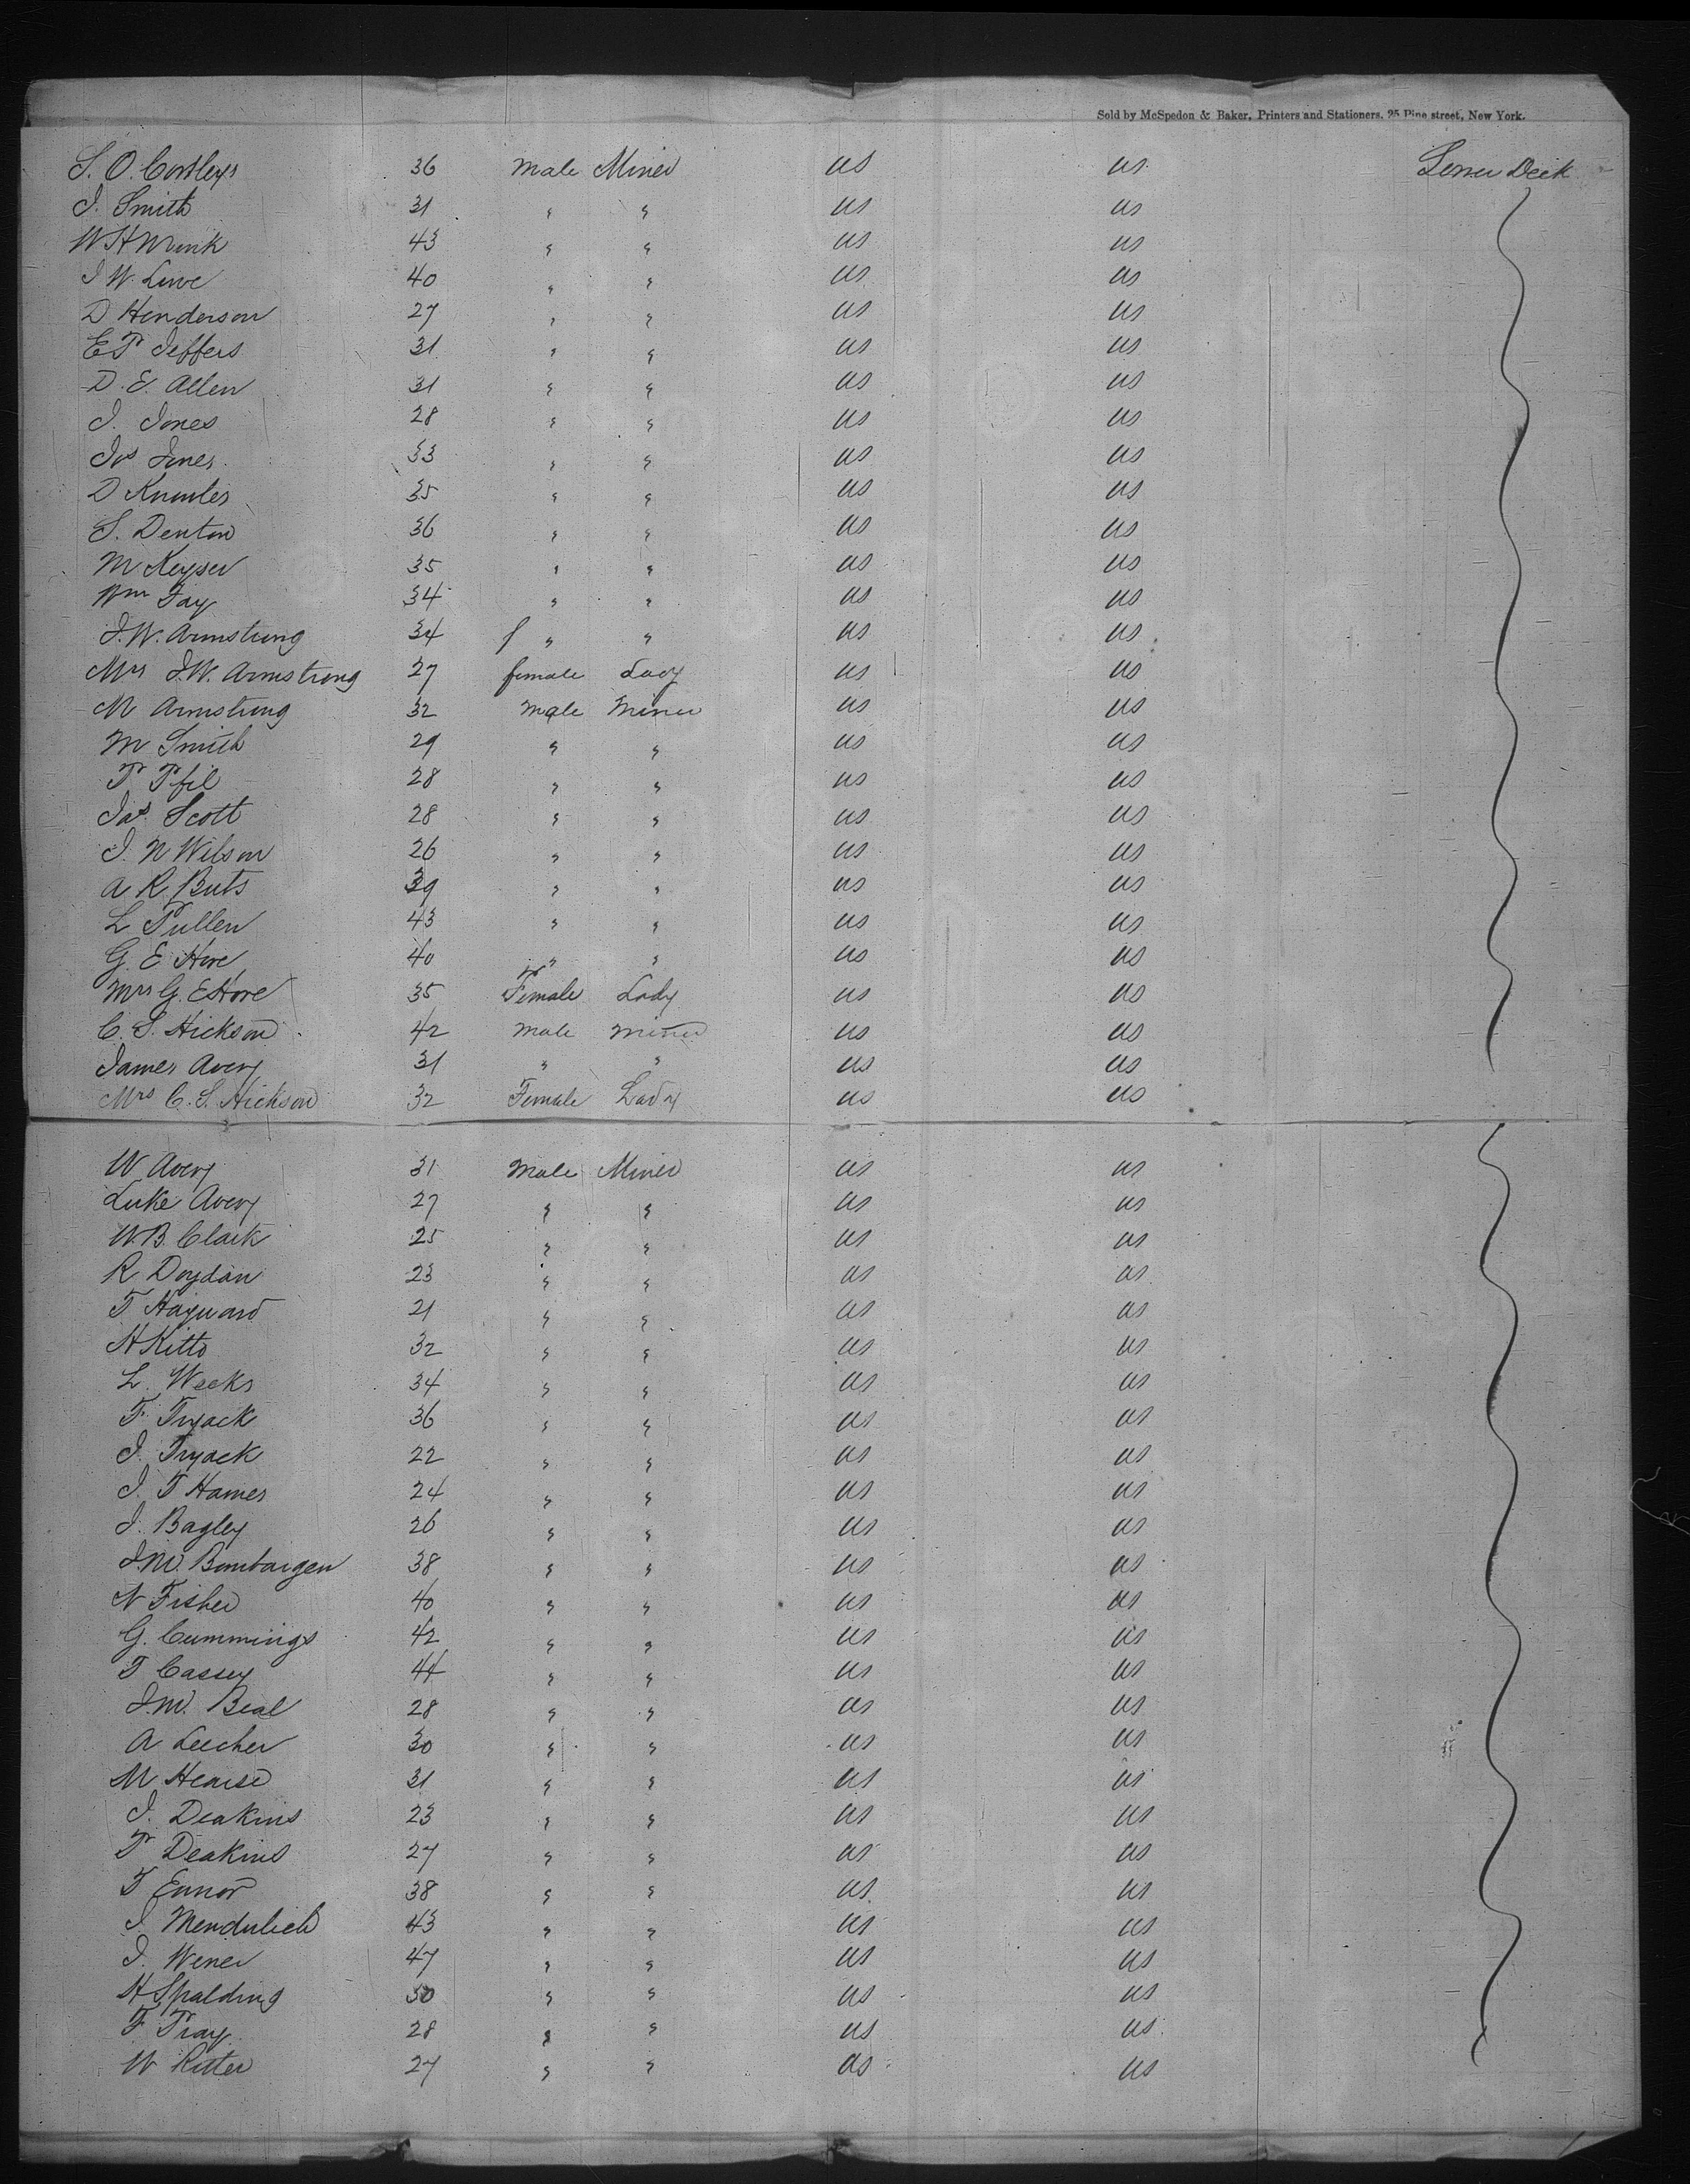 Sold by McSpedon & Baker, Printers and Stationers, 25 Pine street, New York.
S. O. 36 Male Miner US US Lower Deck
J. Smith 31 " " US US
W H Monk 43 " " US US
J W. Love 40 " " US US
D Henderson 27 " " US US
E P Jeffers 31 " " US US
D. E. Allen 31 " " US US
J. Jones 28 " " US US
Jos Jones 33 " " US US
D Knowles 35 " " US US
S. Denton 36 " " US US
M Keyser 35 " " US US
Wm Fay 34 " " US US
J. W. Armstrong 34 f " " US US
Mrs J. W. Armstrong 27 female Lady US US
M Armstrong 32 Male Miner US US
M Smith 29 " " US US
P Pfil 28 " " US US
Jas Scott 28 " " US US
J. N Wilson 26 " " US US
A R Buts 39 " " US US
L Pullen 43 " " US US
G. E Hove 40 " " US US
Mrs G. E Hove 35 Female Lady US US
C. S. Hickson 42 Male Miner US US
James Avery 31 " " US US
Mrs C. S. Hickson 32 Female Lady US US
W Avery 31 Male Miner US US
Luke Avery 27 " " US US
W. B. Clark 25 " " US US
R Doydan 23 " " US US
T Hayward 21 " " US US
H Kitto 32 " " US US
L. Weeks 34 " " US US
F. Tryack 36 " " US US
J. Tryack 22 " " US US
J. T Hames 24 " " US US
J. Bagley 26 " " US US
J. M. Bombargen 38 " " US US
N Fisher 40 " " US US
G. Cummings 42 " " US US
T Cassey 44 " " US US
J. M. Beal 28 " " US US
A Leecher 30 " " US US
M Hearse 31 " " US US
J. Deakins 23 " " US US
P Deakins 27 " " US US
T Ennor 38 " " US US
J Mendulich 43 " " US US
J. Wener 47 " " US US
H Spalding 30 " " US US
F Pray 28 " " US US
W Ritter 27 " " US US